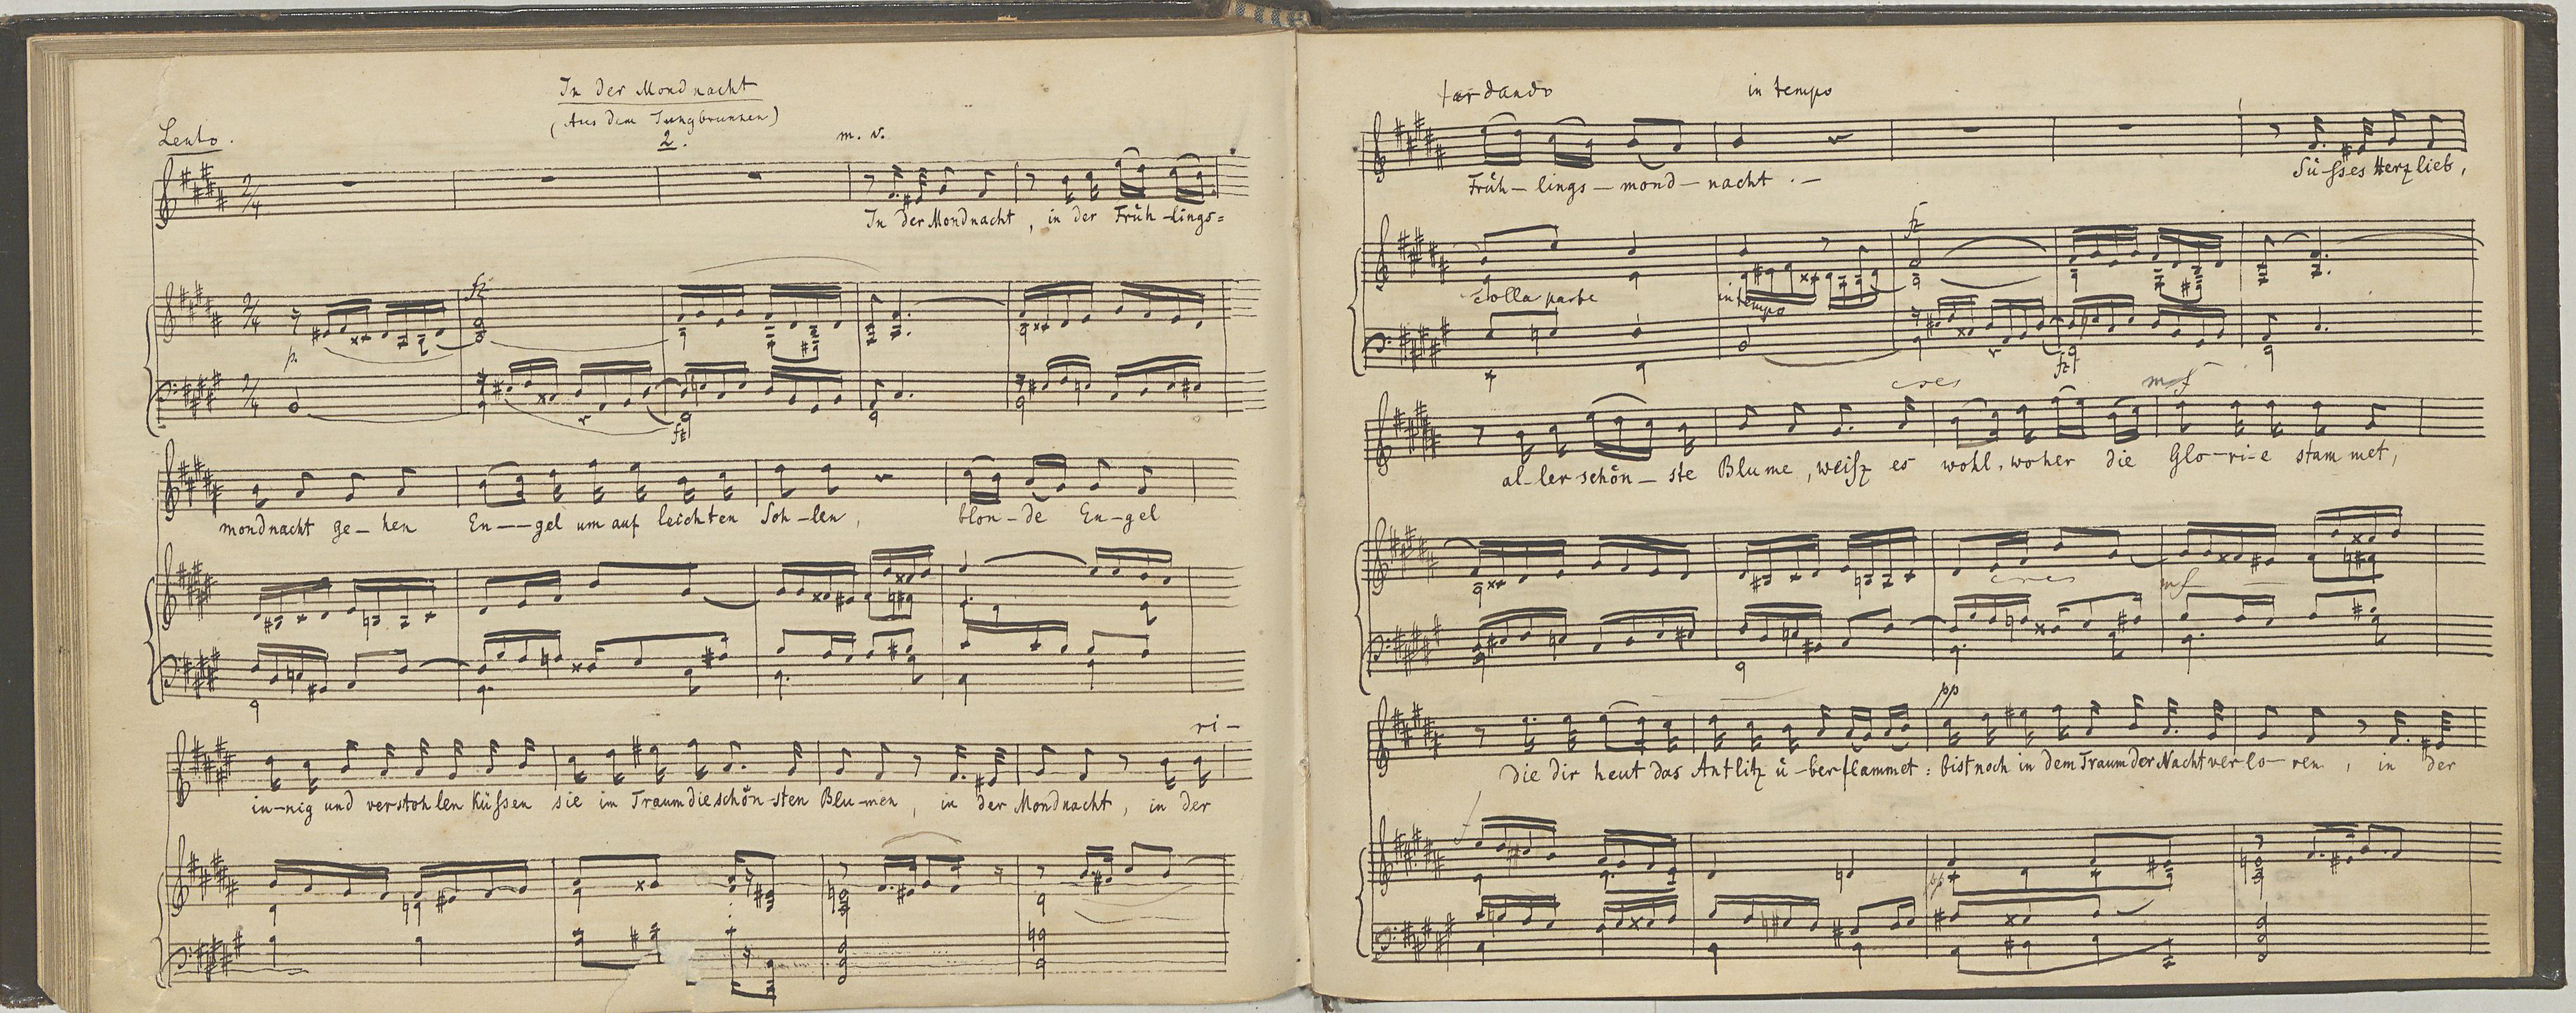 In der Mondnacht
(Aus dem Jungbrunnen)
2.
Lento.
m. v.
2/4
In der Mondnacht, in der Früh-lings=
2/4
fz
p.
2/4
fz
mondnacht ge-hen En--gel um auf leichten Soh-len, blon-de En-gel
ri-
in-nig und verstohlen küssen sie im Traum die schön-sten Blu-men, in der Mondnacht, in der
tardando in tempo
Früh-lings-mond-nacht.- Sü-sses Herzlieb,
fz
colla parte in tempo
fz
cres mf
al-ler schön-ste Blume, weisz es wohl, woher die Glo-ri-e stam met,
cres mf
pp
die dir heut das Antlitz ü-berflammet: bist noch in dem Traum der Nacht verlo-ren, in der
f
pp